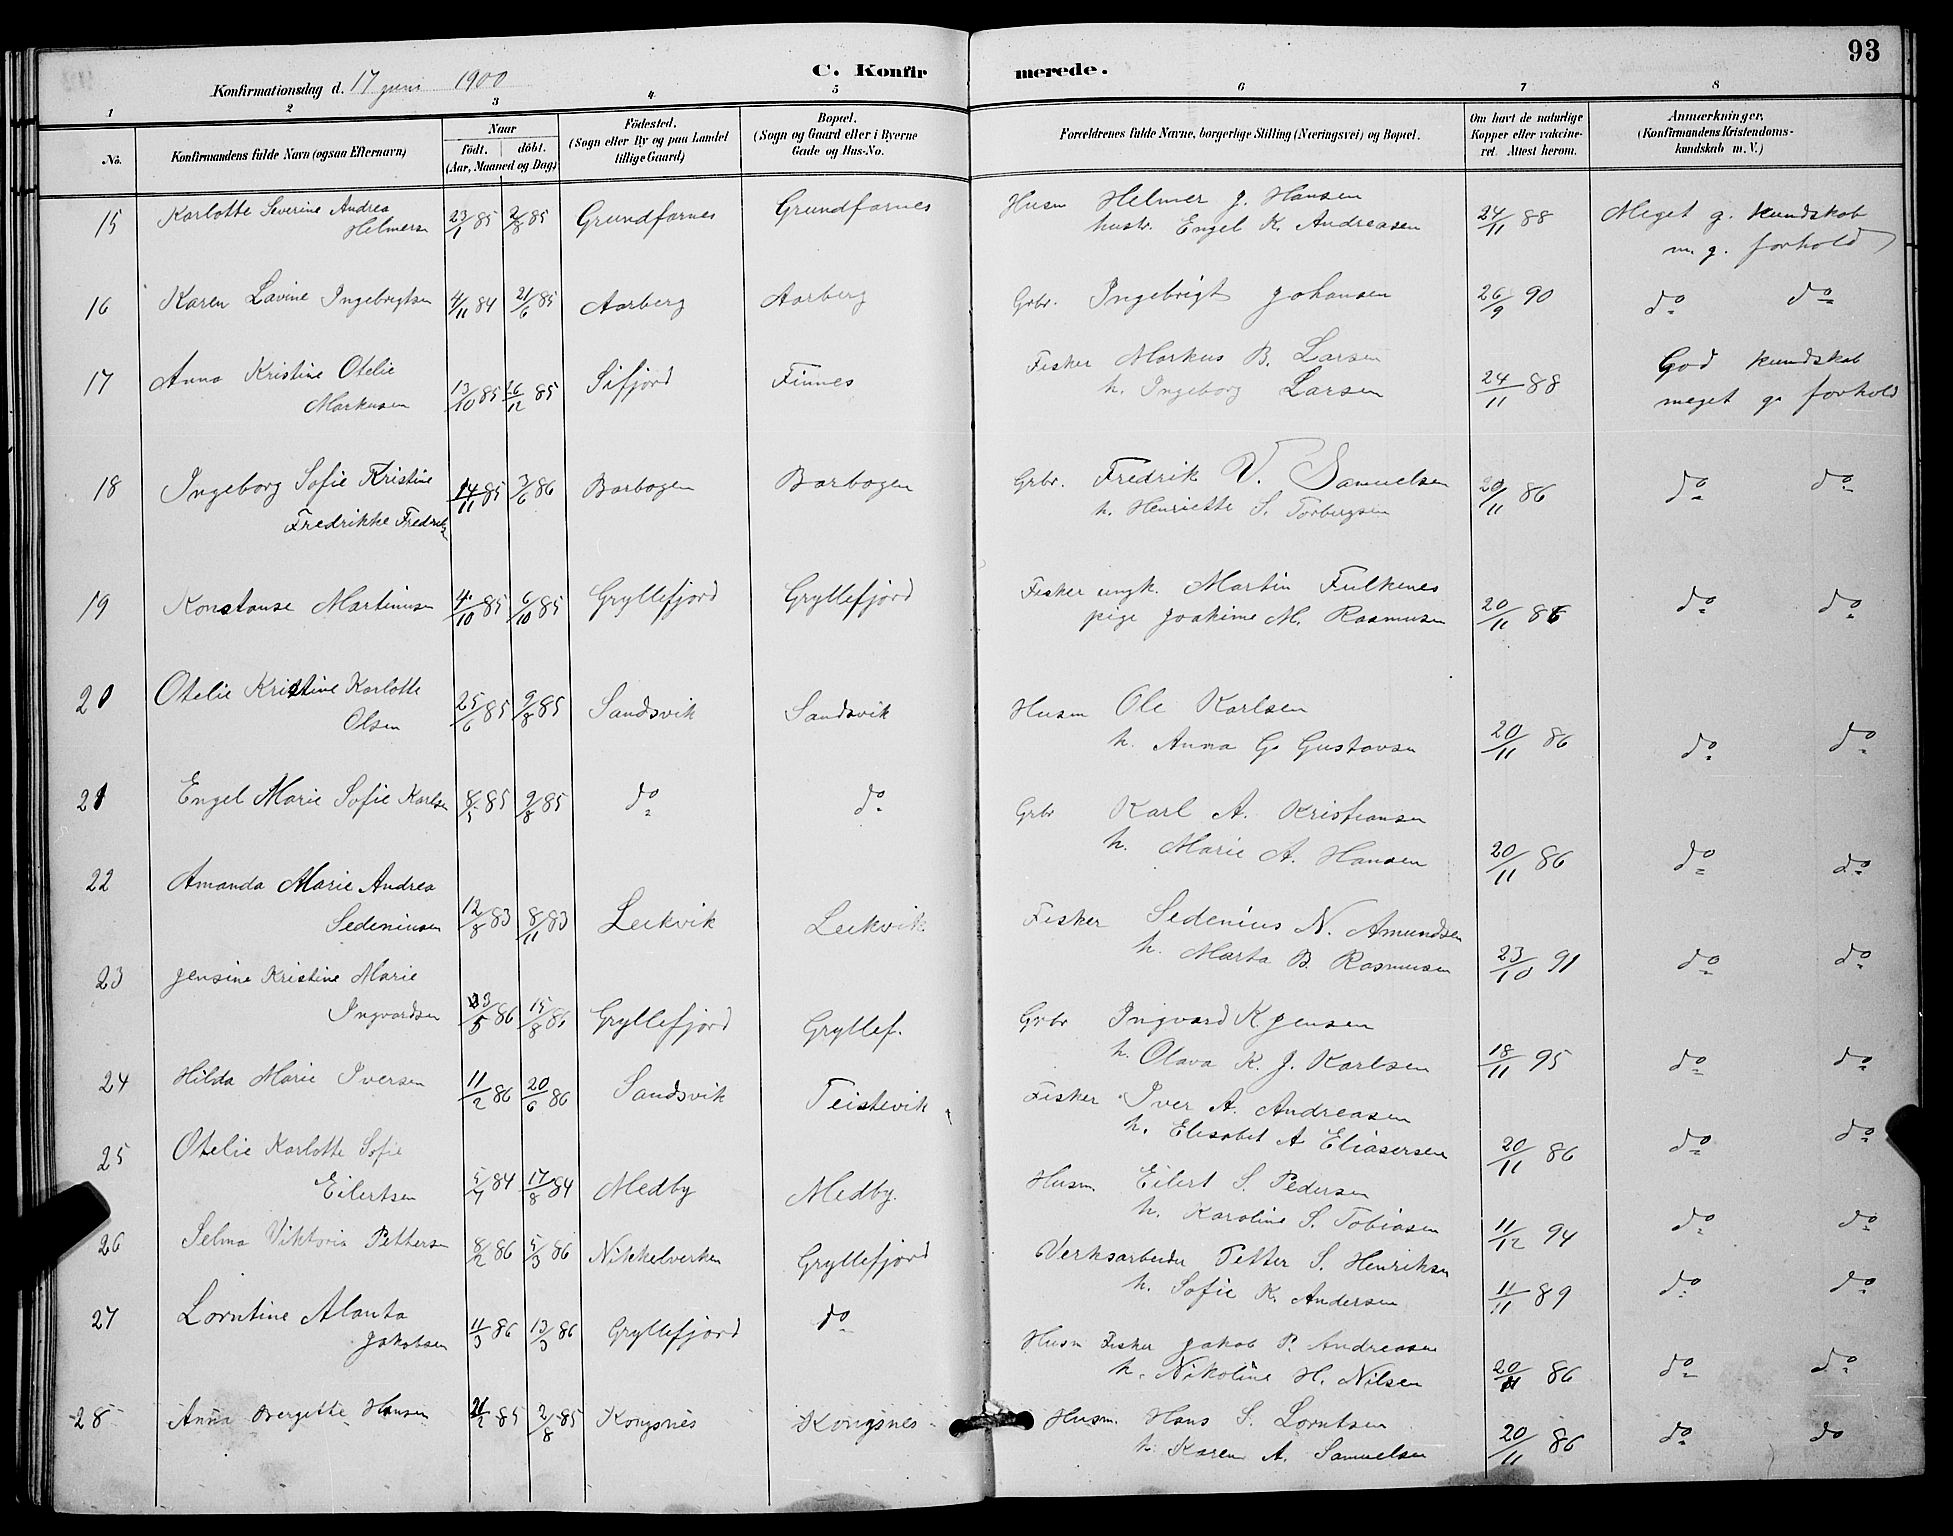 93
Konfirmationsdag d. 17 juni 1900
C. Konfirmerede.
1 2 3 4 5 6 7 8
No. Konfirmandens fulde Navn (ogsaa Efternavn) Naar födt. döbt. (Aar, Maaned og Dag) Födested. (Sogn eller By og paa Landet tillige Gaard) Bopæl. (Sogn og Gaard eller i Byerne Gade og Hus-No. Forældrenes fulde Navne, borgerlige Stilling (Næringsvei) og Bopæl. Om havt de naturlige Kopper eller vakcineret. Attest herom. Anmærkninger. (Konfirmandens Kristendomskundskab m. V.)
15 Karlotte Severine Andrea 23/1 85 2/8 85 Grundfarnes Grundfarnes Husm Helmer J. Hansen 24/11 88 Meget g. kundskab
Helmersen hustr. Engel K. Andreasen m g. forhold
16 Karen Lavine Ingebrigtsen 4/11 84 21/6 85 Aarberg Aarberg Grbr. Ingebrigt Johansen 26/9 90 do do
17 Anna Kristine Otelie 13/10 85 26/12 85 Sifjord Finnes Fisker Markus B. Larsen 24/11 88 God kundskab
Markusen h. Ingeborg Larsen meget g. forhold
18 Ingeborg Sofie Kristine 14/11 85 3/6 86 Barbogen Barbogen Grbr. Fredrik V. Samuelsen 20/11 86 do do
Fredrikke Fredriks h. Henriette S. Torbergsen
19 Konstanse Martinusen 4/10 85 6/10 85 Gryllefjord Gryllefjord Fisker ungk. Martin Fulkenes 20/11 86 do do
pige Joakime M. Rasmusen
20 Otelie Kristine Karlotte 25/6 85 9/8 85 Sandsvik Sandsvik Husm Ole Karlsen 20/11 86 do do
Olsen h. Anna G. Gustavsen
21 Engel Marie Sofie Karlsen 8/5 85 9/8 85 do do Grbr Karl A. Kristiansen 20/11 86 do do
h. Marie A. Hansen
22 Amanda Marie Andrea 12/8 83 8/11 83 Leikvik Leikvik Fisker Sedenius N. Amundsen 23/10 91 do do
Sedeniusen h. Marta B. Rasmusen
23 Jensine Kristine Marie 23/5 86 15/8 86 Gryllefjord Gryllef. Grbr Ingvard K Jensen 18/11 95 do do
Ingvardsen h. Olava K. J. Karlsen
24 Hilda Marie Iversen 11/2 86 20/6 86 Sandsvik Teistevik Fisker Iver A. Andreasen 20/11 86 do do
h. Elisabet A Eliasersen
25 Otelie Karlotte Sofie 5/7 84 17/8 84 Medby Medby. Husm. Eilert S. Pedersen 11/12 94 do do
Eilertsen h. Karoline S. Tobiasen
26 Selma Viktoria Pettersen 8/2 86 5/3 86 Nikkelverken Gryllefjord Verksarbeider Petter S. Henriksen 11/11 89 do do
h. Sofie K. Andersen
27 Lorntine Alanta 11/3 86 13/3 86 Gryllefjord do Husm Fisker Jakob P. Andreasen 20/11 86 do do
Jakobsen h. Nikoline H. Nilsen
28 Anna Bergette Hansen 21/2 85 2/8 85 Kongsnes Kongsnes Husm. Hans S. Lorntsen 20/11 86 do do
h. Karen A. Samuelsen